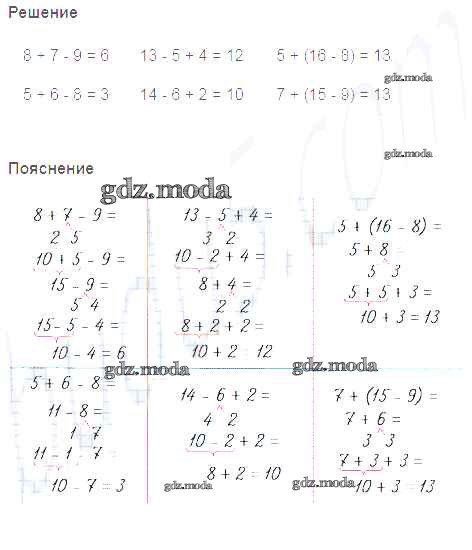 Решение
8 + 7 - 9 = 6 13 - 5 + 4 = 12 5 + (16 - 8) = 13
gdz.moda
5 + 6 - 8 = 3 14 - 6 + 2 = 10 7 + (15 - 9) = 13
gdz.moda
Пояснение
gdz.moda
8 + 7 - 9 =
2 5
10 + 5 - 9 =
15 - 9 =
5 4
15 - 5 - 4 =
10 - 4 = 6
13 - 5 + 4 =
3 2
10 - 2 + 4 =
8 + 4 =
2 2
8 + 2 + 2 =
10 + 2 = 12
5 + (16 - 8) =
5 + 8 =
5 3
5 + 5 + 3 =
10 + 3 = 13
gdz.moda
gdz.moda
5 + 6 - 8 =
11 - 8 =
1 7
11 - 1 - 7 =
10 - 7 = 3
14 - 6 + 2 =
4 2
10 - 2 + 2 =
8 + 2 = 10
gdz.moda
7 + (15 - 9) =
7 + 6 =
3 3
7 + 3 + 3 =
10 + 3 = 13
gdz.moda